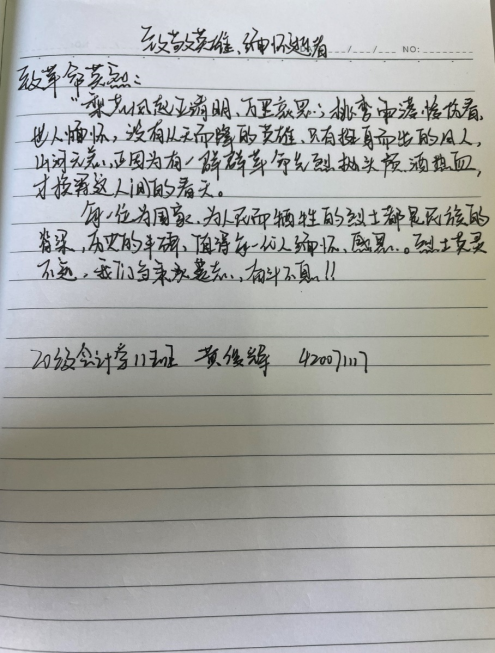 致敬英雄、缅怀逝者
NO:
致革命英烈：
“梨花风起正清明，万里哀思；桃李雨落恰仿春，
世人缅怀，没有从天而降的英雄，只有挺身而出的凡人，
山河无恙，正因为有一群群革命先烈抛头颅，洒热血，
才换得这人间的春天。
每一位为国家、为人民而牺牲的烈士都是民族的
脊梁，历史的丰碑，值得每一个人缅怀、感恩。烈士英灵
不远，我们当秉承遗志，奋斗不息！！
20级会计学11班 黄俊辉 42007117